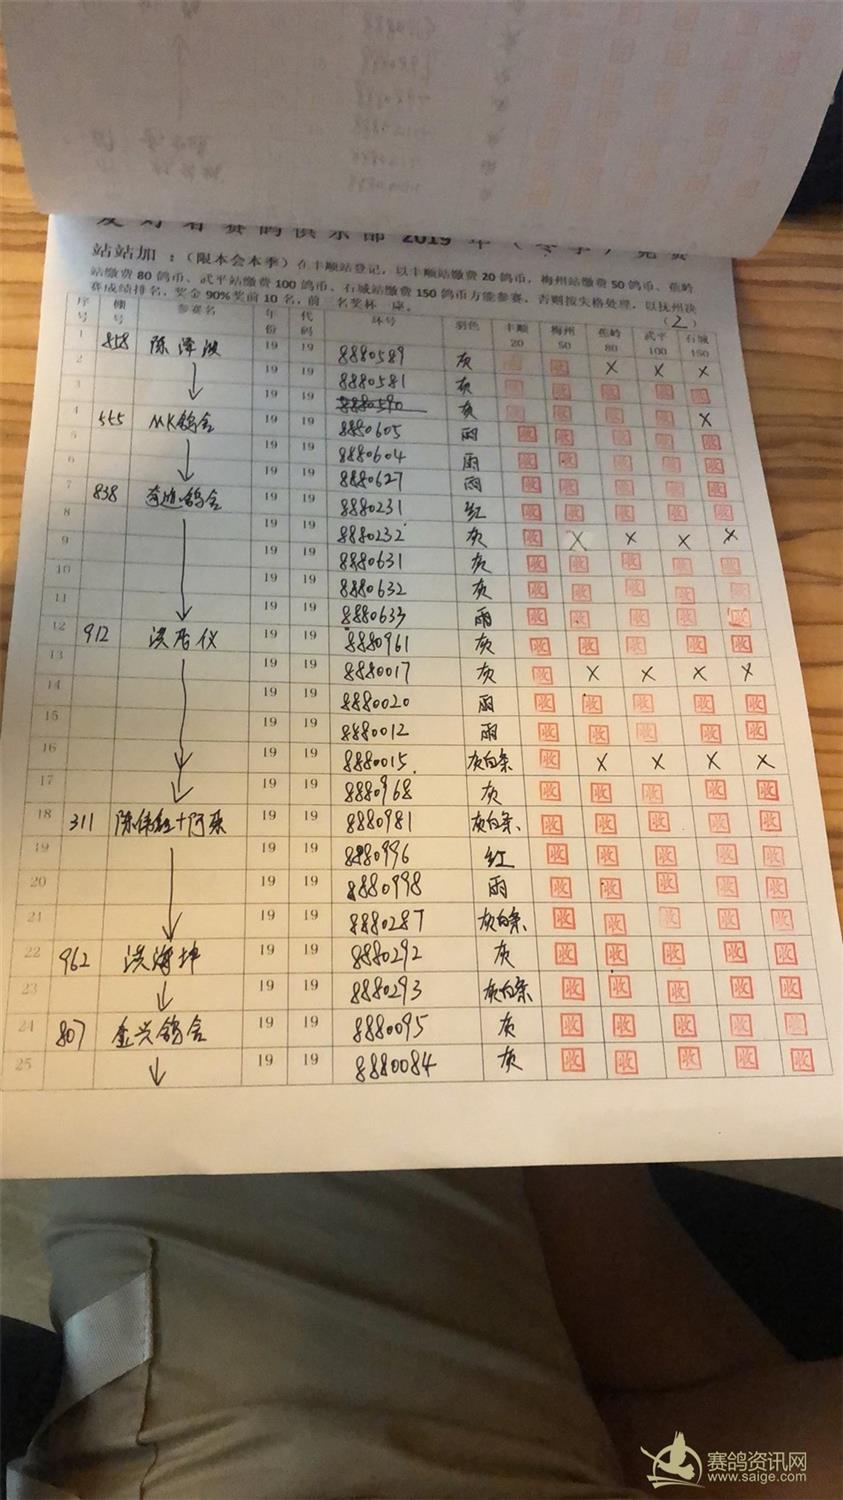 赛鸽俱乐部 2019 年（冬季）
站站加：（限本会本季）在丰顺站登记，以丰顺站缴费 20 鸽币，梅州站缴费 50 鸽币、蕉岭
站缴费 80 鸽币、武平站缴费 100 鸽币、石城站缴费 150 鸽币方能参赛，否则按失格处理，以抚州决
赛成绩排名，奖金 90%奖前 10 名，前 名奖杯 座。
（2）
序号 棚号 参赛名 年份 代码 环号 羽色 丰顺20 梅州50 蕉岭80 武平100 石城150
1 858 陈泽波 19 19 8880589 灰 收 × × ×
2 ↓ 19 19 8880581 灰 收 收 收 收 收
3 19 19 8880590 灰 收 收 收 收 ×
4 555 MK鸽舍 19 19 8880605 雨 收 收 收 收 收
5 ↓ 19 19 8880604 雨 收 收 收 收 收
6 19 19 8880627 雨 收 收 收 收 收
7 838 鸽舍 19 19 8880231 红 收 收 收 收 收
8 19 19 8880232 灰 收 × × × ×
9 19 19 8880631 灰 收 收 收 收 收
10 19 19 8880632 灰 收 收 收 收 收
11 ↓ 19 19 8880633 雨 收 收 收 收 收
12 912 洪 仪 19 19 8880961 灰 收 收 收 收 收
13 19 19 8880017 灰 收 × × × ×
14 19 19 8880020 雨 收 收 收 收 收
15 19 19 8880012 雨 收 收 收 收 收
16 ↓ 19 19 8880015 灰白条 收 × × × ×
17 ↓ 19 19 8880968 灰 收 收 收 收 收
18 311 陈伟 +阿 19 19 8880981 灰白条 收 收 收 收 收
19 19 19 8880996 红 收 收 收 收 收
20 19 19 8880998 雨 收 收 收 收 收
21 ↓ 19 19 8880287 灰白条 收 收 收 收 收
22 962 洪海坤 19 19 8880292 灰 收 收 收 收 收
23 ↓ 19 19 8880293 灰白条 收 收 收 收 收
24 807 金兴鸽舍 19 19 8880095 灰 收 收 收 收 收
25 ↓ 19 19 8880084 灰 收 收 收 收 收
赛鸽资讯网
www.saige.com